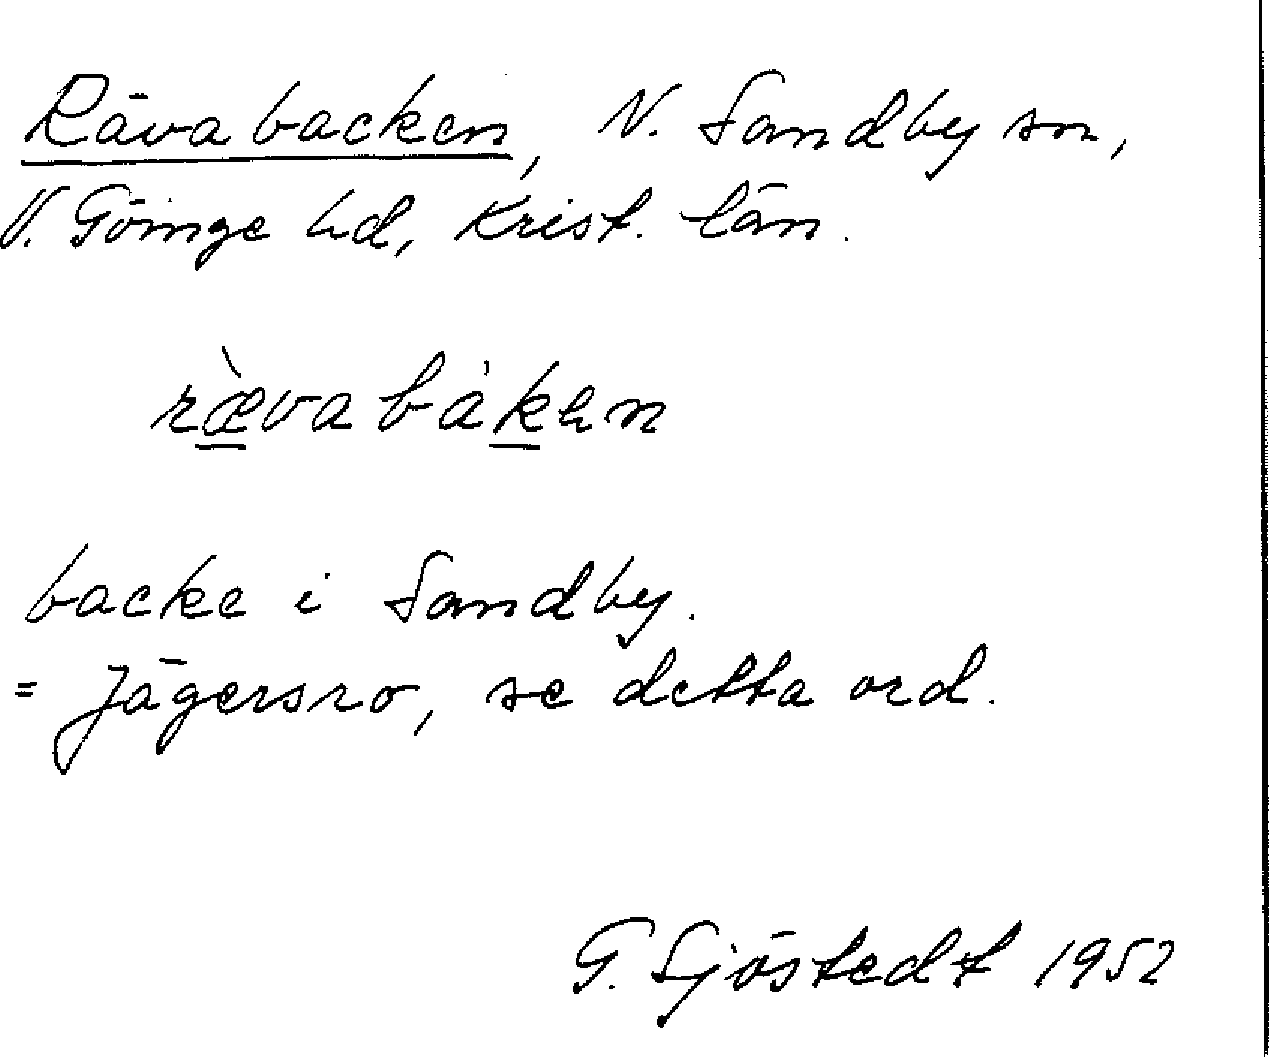 Rävabacken, N. Sandby sn,
V. Göinge hd, Krist. län.
ræ̀vabáken
backe i Sandby.
= Jägersro, se detta ord.
G. Sjöstedt 1952